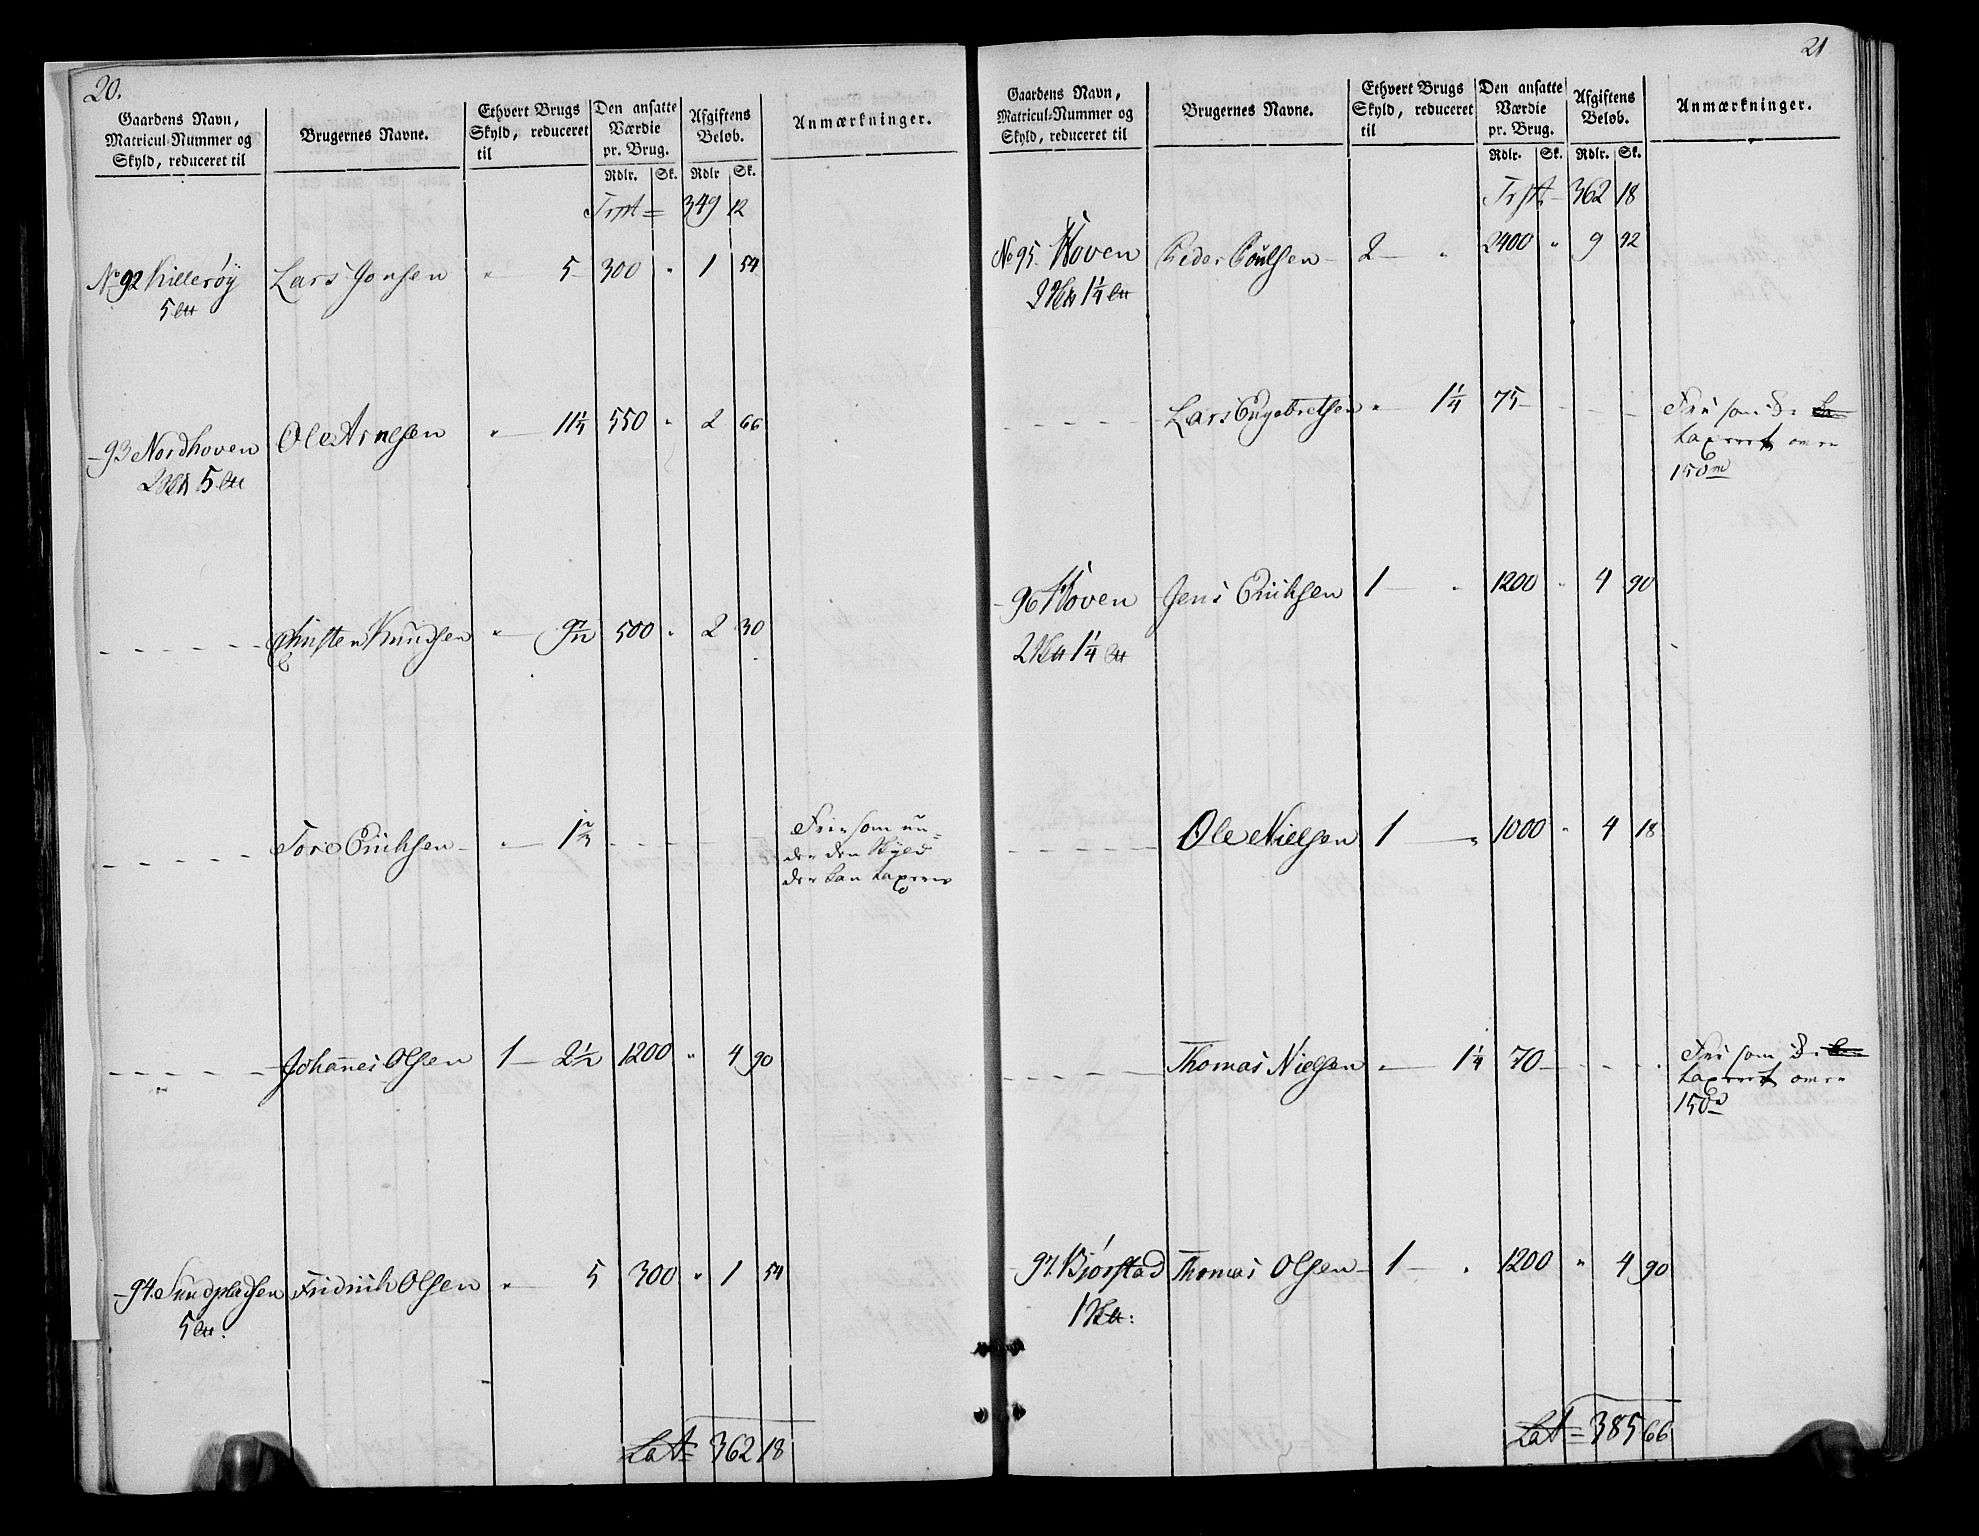 20.
Gaardens Navn, Matricul-Nummer og Skyld, reduceret til | Brugernes Navne. | Ethvert Brugs Skyld, reduceret til | Den ansatte Værdie pr. Brug. | Afgiftens Beløb. | Anmærkninger.
Rdlr. Sk. Rdlr Sk.
Trpt = 349 12
No 92 Killerøy Lars Jonsen " 5 300 " 1 54
5
93 Nordhoven Ole Arnesen " 11 1/4 550 " 2 66
2 5
Christen Knudsen " 500 " 2 30
Tore Erichsen " Frie som un=
der den Skyld
der kan taxeres
Johannes Olsen 1 2 1/2 1200 " 4 90
94. Sundpladsen Fridrich Olsen " 5 300 " 1 54
5
Lat = 362 18
21
Gaardens Navn, Matricul-Nummer og Skyld, reduceret til | Brugernes Navne. | Ethvert Brugs Skyld, reduceret til | Den ansatte Værdie pr. Brug. | Afgiftens Beløb. | Anmærkninger.
Rdlr. Sk. Rdlr. Sk.
Trpt 362 18
No 95. Hoven Peder Poulsen 2 " 2400 " 9 92
2 1 1/4
Lars Engebretsen " 1 1/4 75 Fri som
taxeret over
150
96 Hoven Jens Erichsen 1 " 1200 " 4 90
2 1 1/4
Ole Nielsen 1 " 1000 " 4 18
Thomas Nielsen " 1 1/4 70 Fri som
taxeret over
150
97. Bjørstad Thomas Olsen 1 " 1200 " 4 90
1
Lat = 385 66